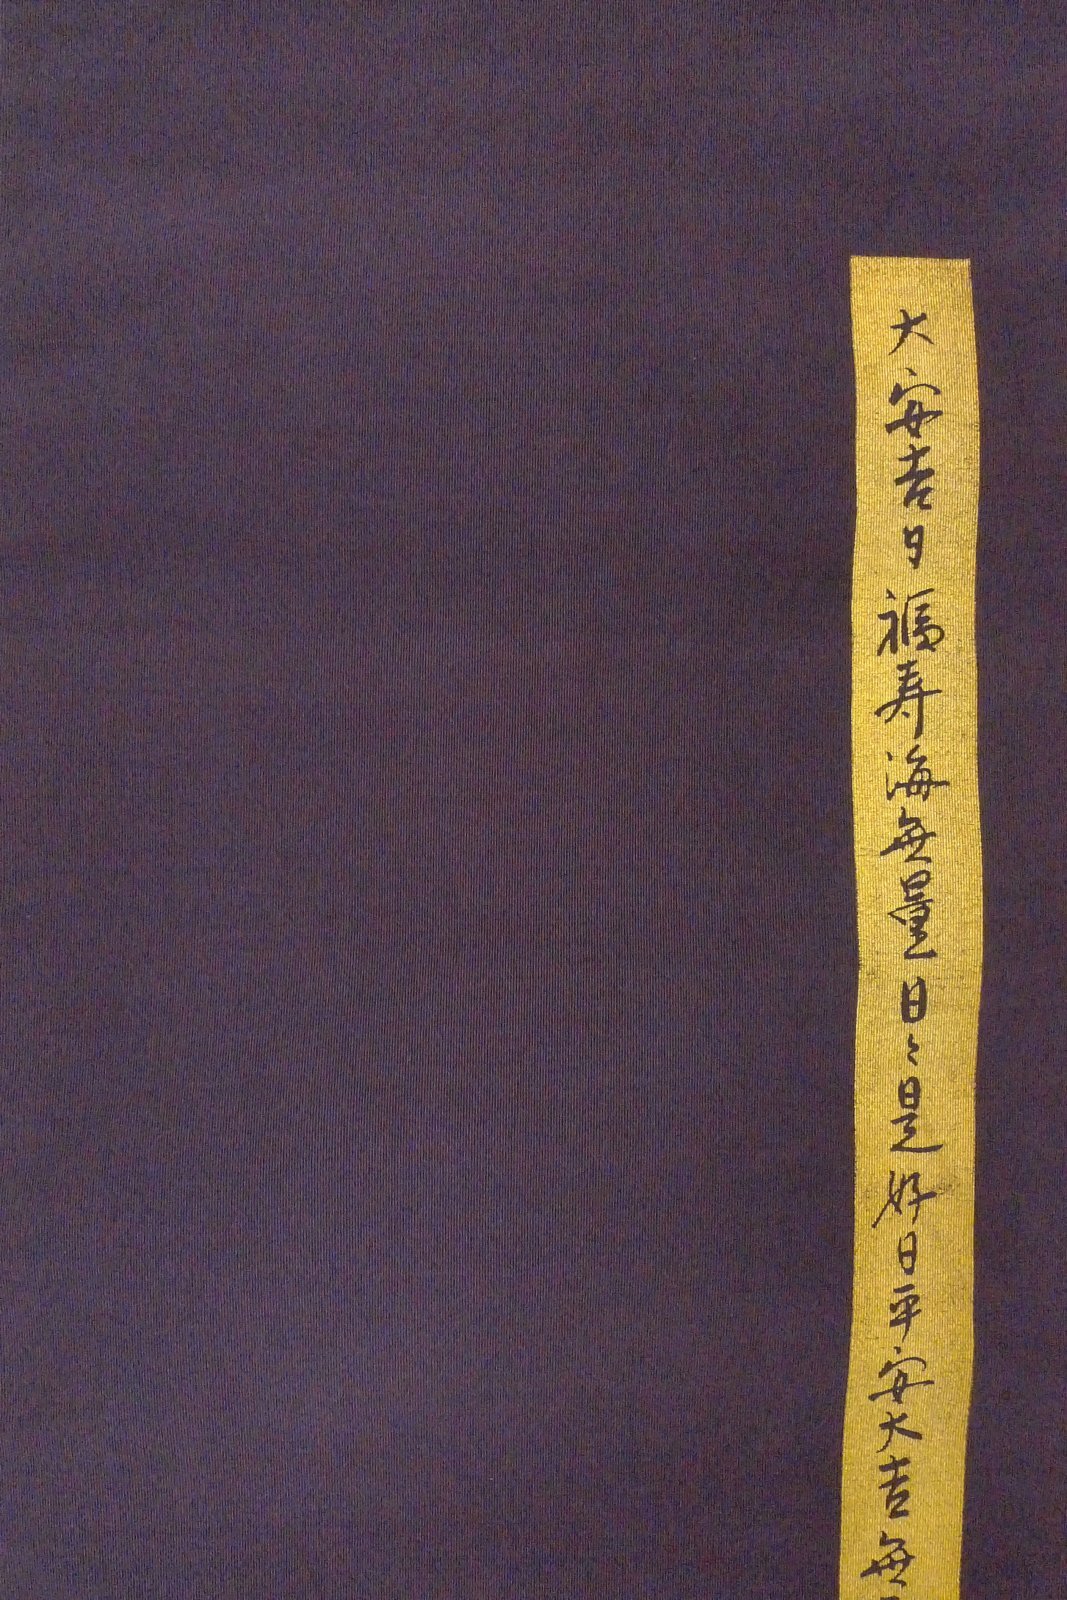 大安吉日福寿海無量日々是好日平安大吉無